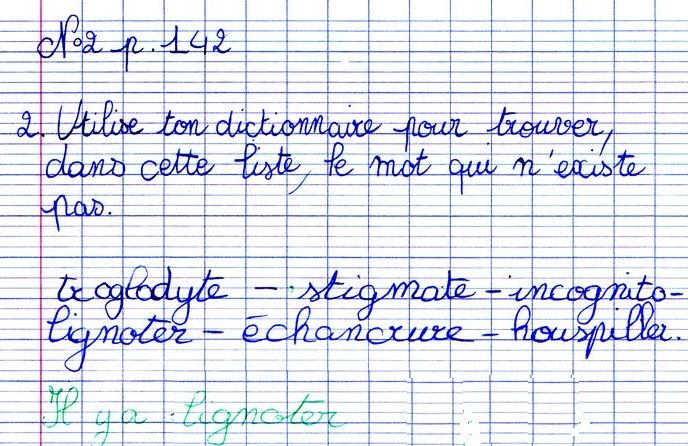 N°2 p. 142
2. Utilise ton dictionnaire pour trouver,
dans cette liste, le mot qui n'existe
pas.
troglodyte - stigmate - incognito -
lignoter - échancrure - houspiller.
Il y a lignoter